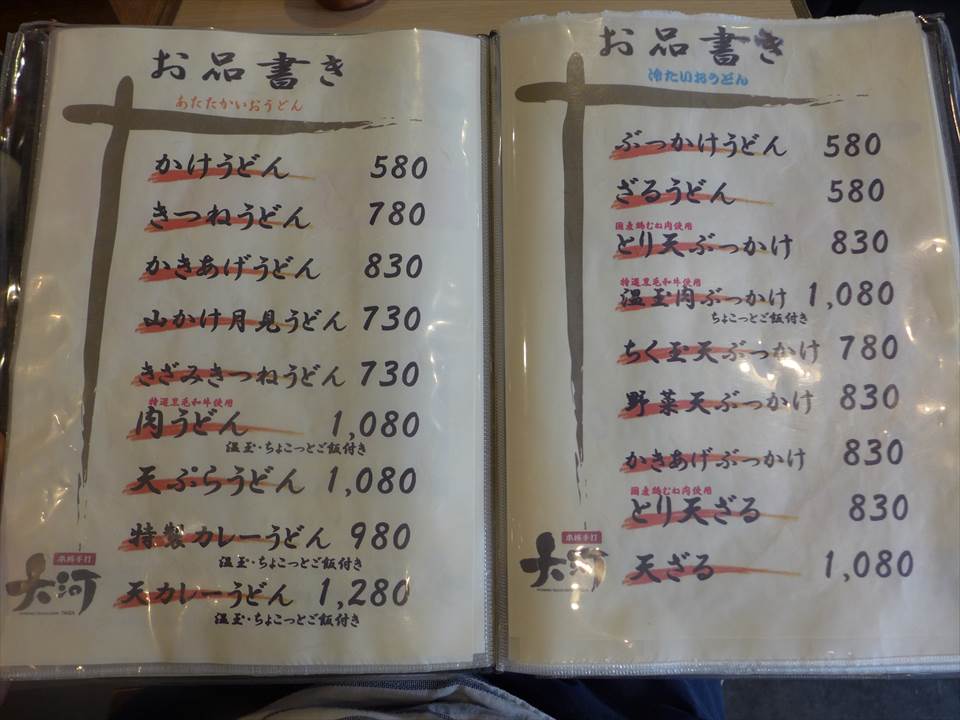 お品書き
あたたかいおうどん
かけうどん 580
きつねうどん 780
かきあげうどん 830
山かけ月見うどん 730
きざみきつねうどん 730
特選黒毛和牛使用
肉うどん 1,080
温玉・ちょこっとご飯付き
天ぷらうどん 1,080
特製カレーうどん 980
温玉・ちょこっとご飯付き
天カレーうどん 1,280
温玉・ちょこっとご飯付き
本格手打
大河
お品書き
冷たいおうどん
ぶっかけうどん 580
ざるうどん 580
国産鶏むね肉使用
とり天ぶっかけ 830
特選黒毛和牛使用
温玉肉ぶっかけ 1,080
ちょこっとご飯付き
ちく玉天ぶっかけ 780
野菜天ぶっかけ 830
かきあげぶっかけ 830
国産鶏むね肉使用
とり天ざる 830
天ざる 1,080
本格手打
大河